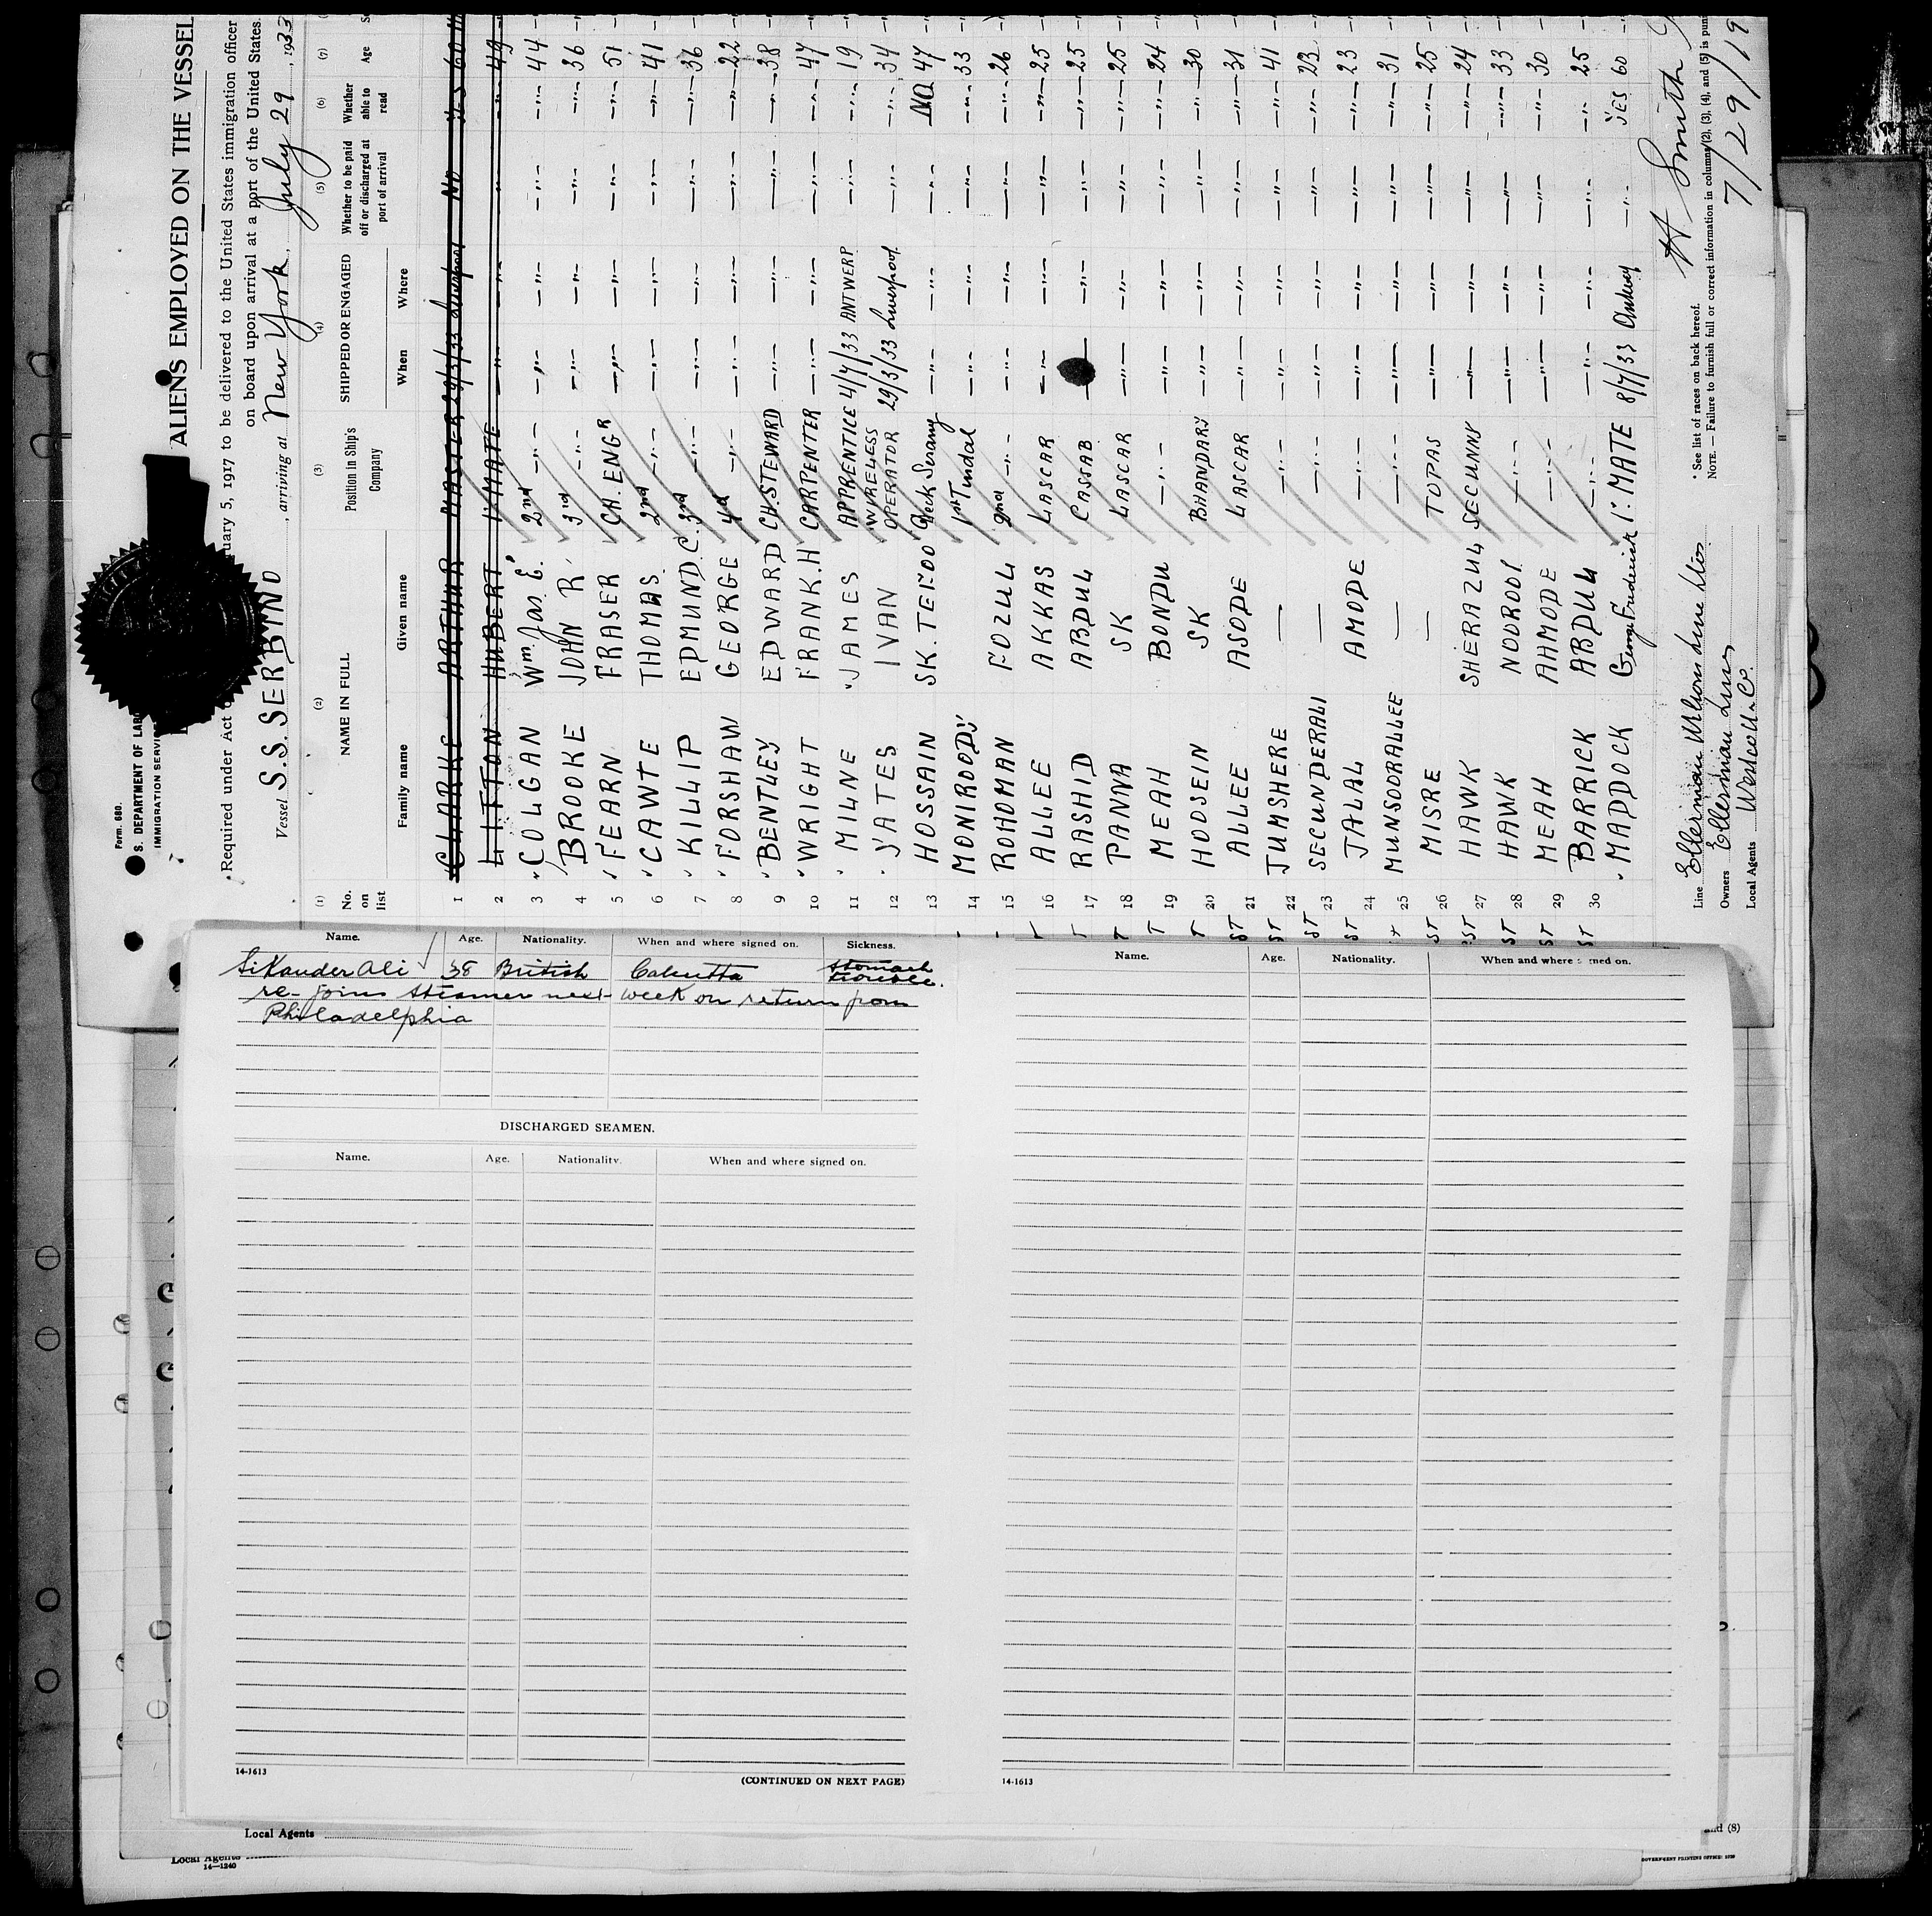 Form 680.
S. DEPARTMENT OF LABOR
IMMIGRATION SERVICE
ALIENS EMPLOYED ON THE VESSEL
Required under Act of February 5, 1917 to be delivered to the United States immigration officer
on board upon arrival at a port of the United States.
Vessel S.S. SERBINO, arriving at New York, July 29, 1933
(1) (2) (3) (4) (5) (6) (7)
No. on list NAME IN FULL Position in Ship's Company SHIPPED OR ENGAGED Whether to be paid off or discharged at port of arrival Whether able to read Age
Family name Given name When Where
1 CLARKE ARTHUR MASTER 29/3/33 Liverpool NO YES 60
2 LITTON HUBERT 1st MATE -"- -"- -"- -"- 49
3 COLGAN Wm. Jas E. 2nd -"- -"- -"- -"- -"- 44
4 BROOKE JOHN R. 3rd -"- -"- -"- -"- -"- 36
5 FEARN FRASER CH. ENGR -"- -"- -"- -"- 51
6 CAWTE THOMAS 2nd -"- -"- -"- -"- -"- 41
7 KILLIP EDMUND C. 3rd -"- -"- -"- -"- -"- 36
8 FORSHAW GEORGE 4th -"- -"- -"- -"- -"- 22
9 BENTLEY EDWARD CH. STEWARD -"- -"- -"- -"- 38
10 WRIGHT FRANK.H CARPENTER -"- -"- -"- -"- 47
11 MILNE JAMES APPRENTICE 4/7/33 ANTWERP -"- -"- 19
12 YATES IVAN WIRELESS OPERATOR 29/3/33 Liverpool -"- -"- 34
13 HOSSAIN SK. Deck Serang -"- -"- -"- NO 47
14 MONIROODY 1st Tindal -"- -"- -"- -"- 33
15 ROHOMAN FOZUL 2nd -"- -"- -"- -"- -"- 26
16 ALLEE AKKAS LASCAR -"- -"- -"- -"- 25
17 RASHID ABDUL CASSAB -"- -"- -"- 25
18 PANNA SK LASCAR -"- -"- -"- -"- 25
19 MEAH BONDU -"- -"- -"- -"- -"- 24
20 HODSEIN SK BHANDARY -"- -"- -"- -"- 30
21 ALLEE ASODE LASCAR -"- -"- -"- -"- 31
22 JUMSHERE — -"- -"- -"- -"- -"- 41
23 SECUNDERALI — -"- -"- -"- -"- -"- 23
24 JALAL AMODE -"- -"- -"- -"- -"- 23
25 MUNSOORALLEE — -"- -"- -"- -"- -"- 31
26 MISRE — TOPAS -"- -"- -"- -"- 25
27 HAWK SHERAZUL SECUNNY -"- -"- -"- -"- 24
28 HAWK NOOROOL -"- -"- -"- -"- -"- 33
29 MEAH AHMODE -"- -"- -"- -"- -"- 30
30 BARRICK ABDUL -"- -"- -"- -"- -"- 25
MADDOCK George Frederick 1st MATE 8/7/33 Antwerp -"- YES 60
Line Ellerman Wilson Line Ltd
Owners Ellerman Lines
Local Agents
* See list of races on back hereof.
NOTE.—Failure to furnish full or correct information in columns (2), (3), (4), and (5) is
H Smith
7/29/19
Name. Age. Nationality. When and where signed on. Sickness.
Sikander Ali 38 British Calcutta stomach trouble.
re-joins steamer next week on return from
Philadelphia
DISCHARGED SEAMEN.
Name. Age. Nationality. When and where signed on.
14-1613
(CONTINUED ON NEXT PAGE)
Name. Age. Nationality. When and where signed on.
14-1613
Local Agents
and (8)
Local Agents
14—1240
GOVERNMENT PRINTING OFFICE